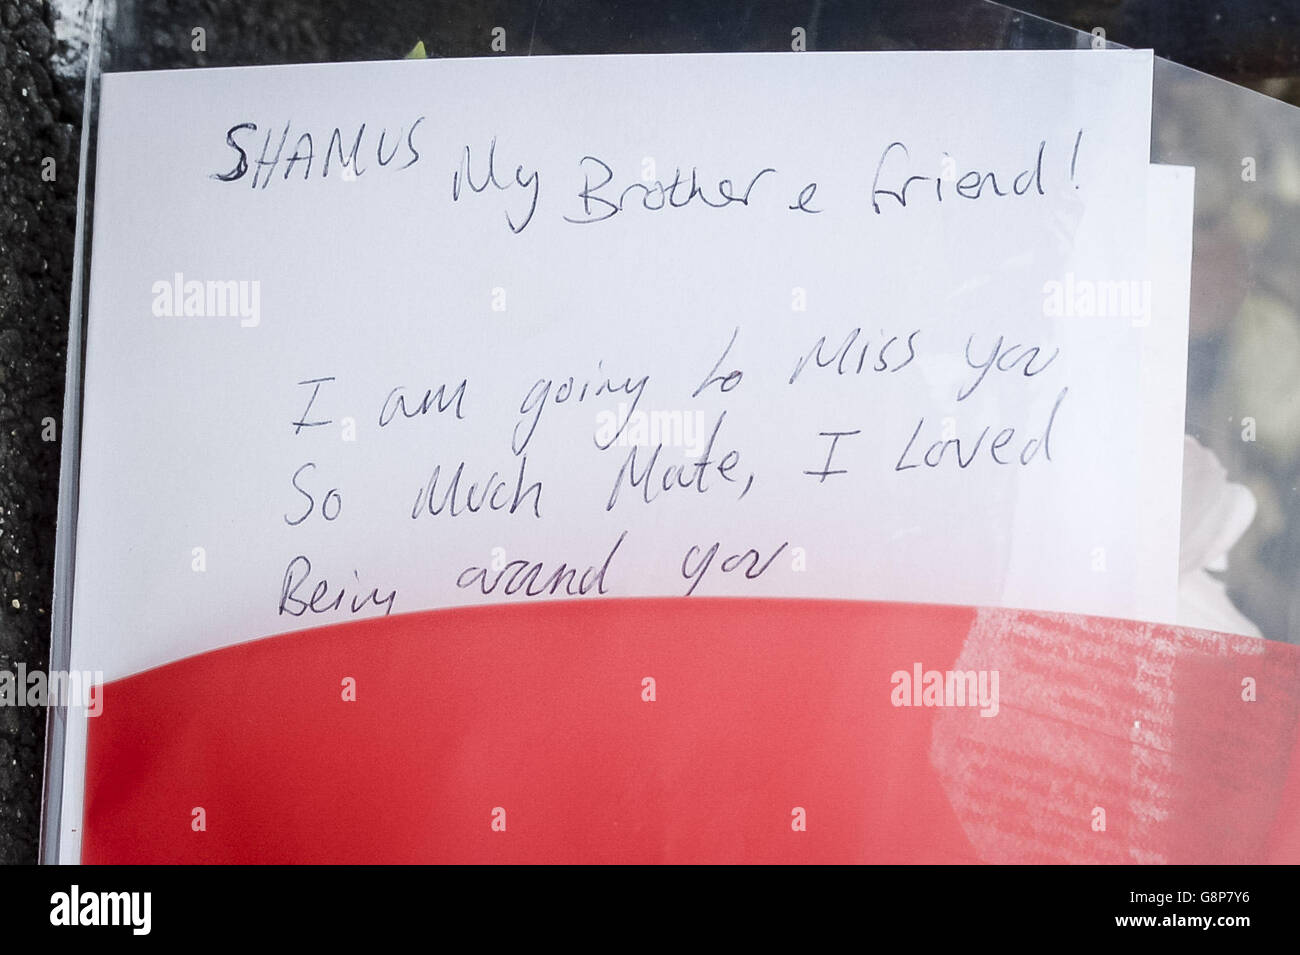 SHAMUS My Brother & friend!
I am going to Miss you
So Much Mate, I Loved
Being around you
alamy
alamy
alamy
alamy
alamy
Image ID: G8P7Y6
www.alamy.com